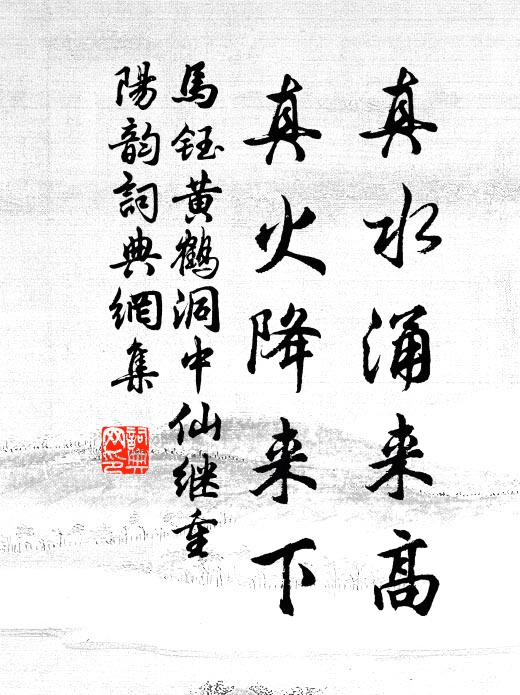 真水涌来高
真火降来下
馬鈺黄鶴洞中仙继重
陽韵詞典網集
詞典
网印